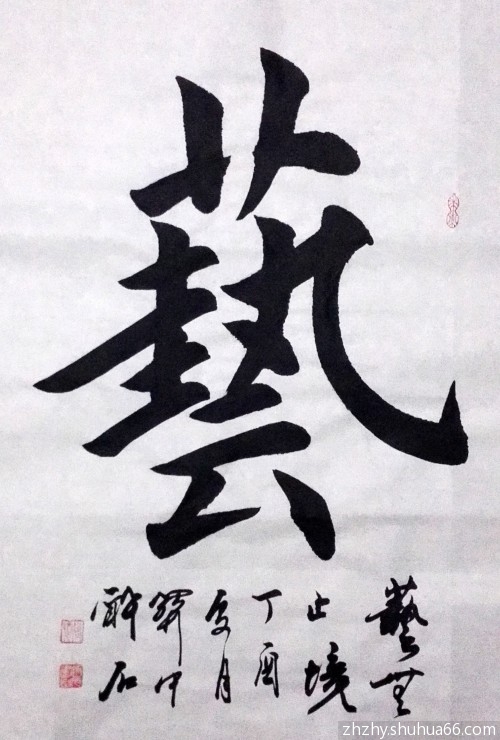 藝
藝無
止境
丁酉
夏月
石
zhzhy.shuhua66.com